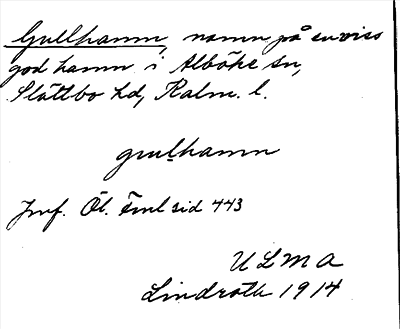 Gullhamn, namn på en viss
god hamn i Alböke sn,
Slättbo hd, Kalm. l.
gruḷhamn
Jmf. Öl. Eml sid 443
U L M A
Lindroth 1914